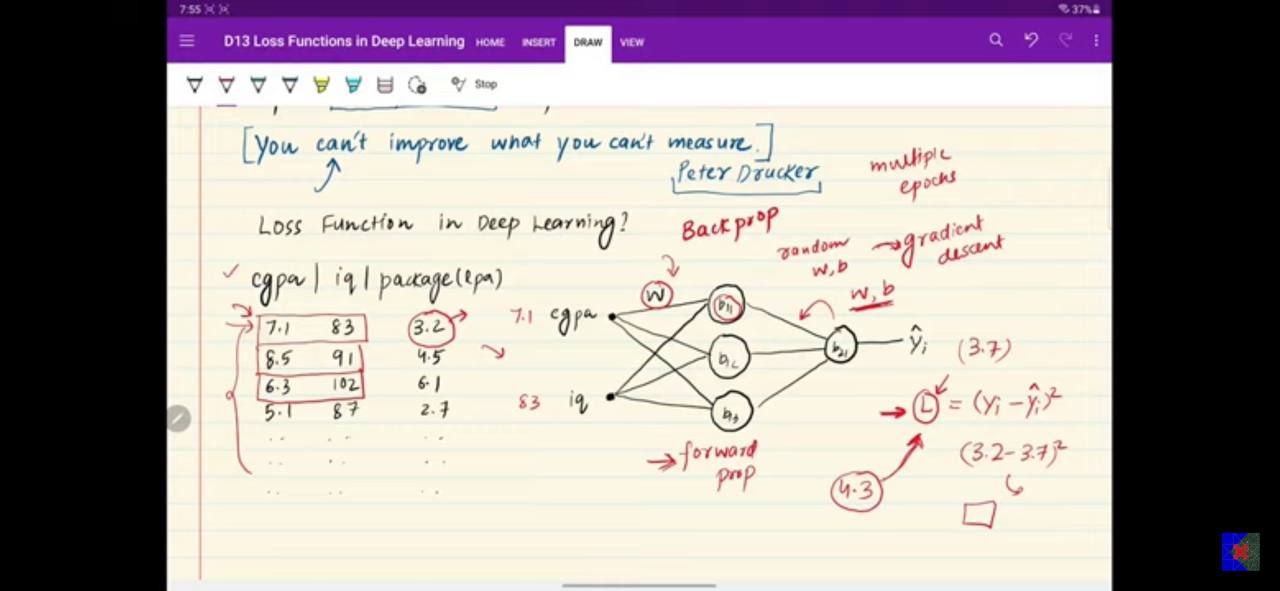 7:55
37%
D13 Loss Functions in Deep Learning HOME INSERT DRAW VIEW
Stop
[You can't improve what you can't measure.]
Peter Drucker
multiple
epochs
Loss Function in Deep Learning?
Backprop
random
w,b
→gradient
descent
w, b
✓ cgpa | iq | package(lpa)
W
7.1 83 3.2
8.5 91 4.5
6.3 102 6.1
5.1 87 2.7
.. .. ..
.. .. ..
.. .. ..
7.1 cgpa
83 iq
b11
b12
b13
b21
ŷi (3.7)
L = (yi - ŷi)²
(3.2-3.7)²
→forward
prop
4.3